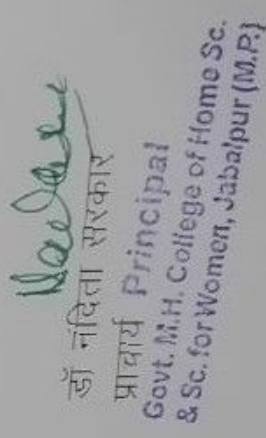 डॉ नंदिता सरकार
प्राचार्य Principal
Govt. M.H. College of Home Sc.
& Sc. for Women, Jabalpur (M.P.)